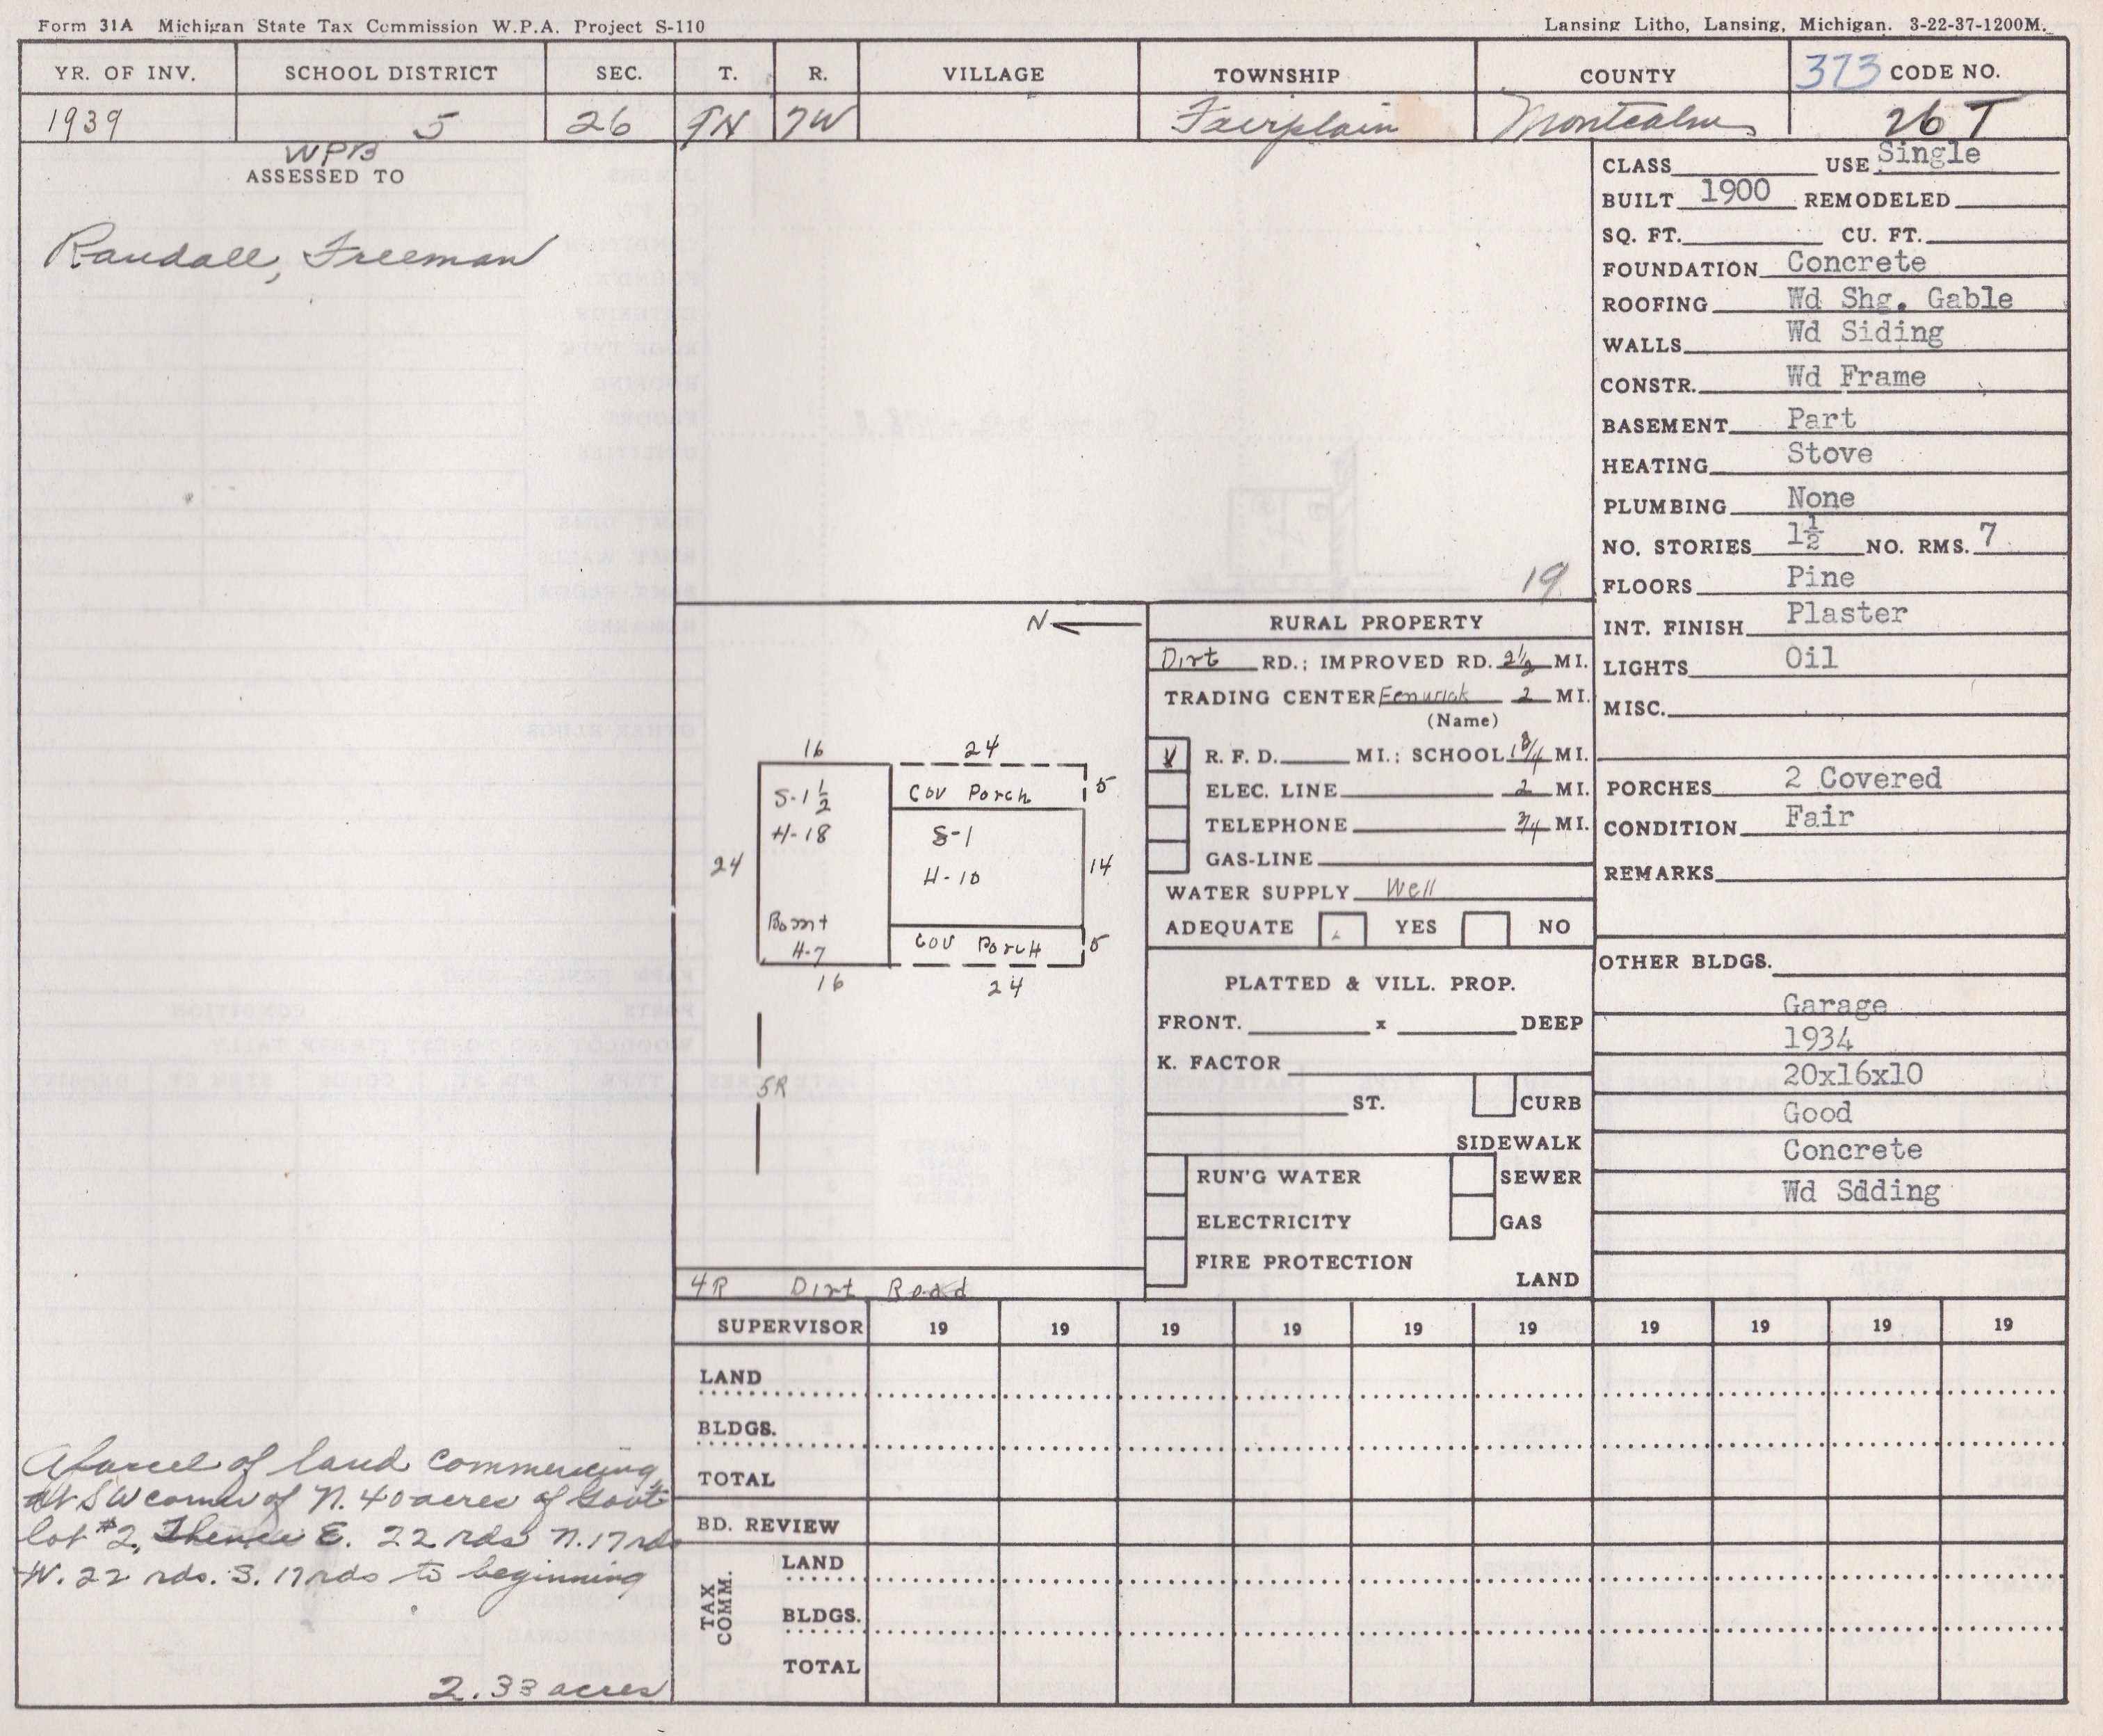 Form 31A Michigan State Tax Commission W.P.A. Project S-110
Lansing Litho, Lansing, Michigan. 3-22-37-1200M.
YR. OF INV. SCHOOL DISTRICT SEC. T. R. VILLAGE TOWNSHIP COUNTY 373 CODE NO.
1939 5 26 9N 7W Fairplain Montcalm 26 T
WPB
ASSESSED TO
Randall, Freeman
A parcel of land commencing
at SW corner of N. 40 acres of Govt
lot #2, Thence E. 22 rds N. 17 rds
W. 22 rds. S. 17 rds to beginning
2.33 acres
19
N
16 24
S-1 1/2 Cov Porch 5
H-18 S-1
24 H-10 14
Bsmt Cov Porch 5
H-7
16 24
5R
4R Dirt Road
RURAL PROPERTY
Dirt RD.; IMPROVED RD. 2 1/2 MI.
TRADING CENTER Fenwick 2 MI.
(Name)
R. F. D. MI.; SCHOOL 1 3/4 MI.
ELEC. LINE 2 MI.
TELEPHONE 3/4 MI.
GAS-LINE
WATER SUPPLY Well
ADEQUATE YES NO
PLATTED & VILL. PROP.
FRONT. x DEEP
K. FACTOR
ST. CURB
SIDEWALK
RUN'G WATER SEWER
ELECTRICITY GAS
FIRE PROTECTION
LAND
CLASS USE Single
BUILT 1900 REMODELED
SQ. FT. CU. FT.
FOUNDATION Concrete
ROOFING Wd Shg. Gable
WALLS Wd Siding
CONSTR. Wd Frame
BASEMENT Part
HEATING Stove
PLUMBING None
NO. STORIES 1½ NO. RMS. 7
FLOORS Pine
INT. FINISH Plaster
LIGHTS Oil
MISC.
PORCHES 2 Covered
CONDITION Fair
REMARKS
OTHER BLDGS.
Garage
1934
20x16x10
Good
Concrete
Wd Sdding
SUPERVISOR 19 19 19 19 19 19 19 19 19 19
LAND
BLDGS.
TOTAL
BD. REVIEW
TAX COMM.
LAND
BLDGS.
TOTAL